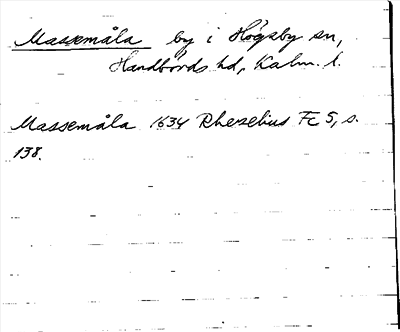 Massemåla by i Högsby sn,
Handbörds hd, Kalm. l.
Massemåla 1634 Rhezelius Fc 5, s.
138.